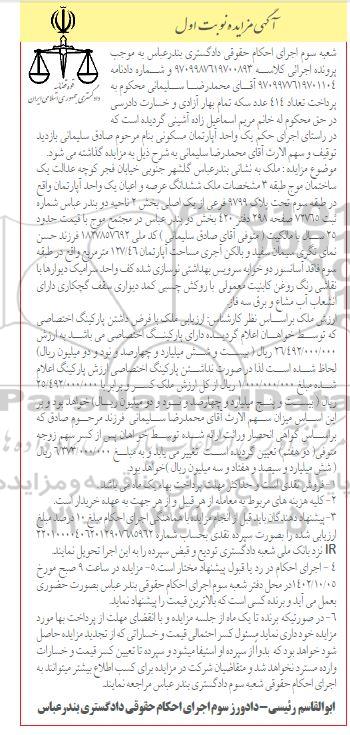 آگهی مزایده نوبت اول
قوه قضائیه
دادگستری جمهوری اسلامی ایران
شعبه سوم اجرای احکام حقوقی دادگستری بندرعباس به موجب
پرونده اجرائی کلاسه ۹۷۰۹۹۸۷۶۱۹۷۰۰۸۹۳ و شماره دادنامه
۹۷۰۹۹۷۷۶۱۹۷۰۱۱۰۴ آقای محمدرضا سلیمانی محکوم به
پرداخت تعداد ۴۱۴ عدد سکه تمام بهار آزادی و خسارت دادرسی
در حق محکوم له خانم مریم اسماعیل زاده آشینی گردیده است که
در راستای اجرای حکم یک واحد آپارتمان مسکونی بنام مرحوم صادق سلیمانی بازدید
توقیف و سهم الارث آقای محمدرضا سلیمانی به شرح ذیل به مزایده گذاشته می شود.
موضوع مزایده : ملک به نشانی بندرعباس گلشهر جنوبی خیابان فجر کوچه عدالت یک
ساختمان موج طبقه ۳ مشخصات ملک ششدانگ عرصه و اعیان یک واحد آپارتمان واقع
در طبقه سوم تحت پلاک ۹۷۹۹ فرعی از یک اصلی بخش ۲ ناحیه دو بندر عباس شماره
ثبت ۷۲۷۶۵ صفحه ۲۹۸ دفتر ۴۲۰ بخش دو بندر عباس در مجتمع موج با قدمت حدود
۲۵ سال با مالکیت ( متوفی آقای صادق سلیمانی ) کد ملی ۱۸۲۷۸۵۷۶۹۲ فرزند حسن
نمای نگری سیمان سفید و بالکن آجری مساحت آپارتمان ۱۲۷/۴۶ متر مربع واقع در طبقه
سوم فاقد آسانسور دو خوابه سرویس بهداشتی نوسازی شده کف واحد سرامیک دیوارها با
نقاشی رنگ روغن کابنیت معمولی با روکش چسبی کمد دیواری سقف گچکاری دارای
انشعاب آب مشاع و برق سه فاز
ارزش ملک براساس نظر کارشناس: ارزیابی ملک با فرض داشتن پارکینگ اختصاصی
که توسط خواهان اعلام گردیده دارای پارکینگ اختصاصی می باشد به ارزش
۲۶/۴۹۲/۰۰۰/۰۰۰ ریال ( بیست و شش میلیارد و چهارصد و نود و دو میلیون ریال)
لحاظ شده است لذا در صورت نداشتن پارکینگ اختصاصی ارزش پارکینگ اعلام
شده مبلغ ۱/۰۰۰/۰۰۰/۰۰۰ ریال از کل ارزش ملک کسر و برابر با ۲۵/۴۹۲/۰۰۰/۰۰۰
ریال ( بیست و پنج میلیارد و چهارصد و نود و دو میلیون ریال) خواهد بود و بر
این اساس میزان سهم الارث آقای محمدرضا سلیمانی فرزند مرحوم صادق که
براساس گواهی انحصار وراثت ارائه شده توسط خواهان پس از کسر سهم زوجه
متوفی( دو هفتم ) تعیین گردیده است تغییر می یابد و به مبلغ ۶/۳۷۳/۰۰۰/۰۰۰ ریال
( شش میلیارد و سیصد و هفتاد و سه میلیون ریال)خواهد بود.
۱- فروش نقدی است و حداکثر مهلت پرداخت بهاء یک ماه می باشد.
۲- کلیه هزینه های مربوط به معامله از هر قبیل و از هر جهت به عهده خریدار است.
۳- پیشنهاد دهندگان باید قبل از انجام مزایده با هماهنگی اجرای احکام مبلغ ۱۰ درصد مبلغ
ارزیابی شده را بصورت سپرده نقدی بحساب شماره
IR نزد بانک ملی شعبه دادگستری تودیع و قبض سپرده را به این اجرا تحویل نمایند.
۴- اجرای احکام در رد یا قبول پیشنهاد مختار است.۵- مزایده در ساعت ۹ صبح مورخ
۱۴۰۲/۱۰/۰۵ در محل دفتر شعبه سوم اجرای احکام حقوقی بندر عباس بصورت حضوری
بعمل می آید و برنده کسی است که بالاترین قیمت را پیشنهاد نماید.
۶- در صورتیکه برنده تا یک ماه از جلسه مزایده و با انقضای مهلت از پرداخت بها مورد
مزایده خودداری نماید مسئول کسر احتمالی قیمت و خساراتی که از تجدید مزایده حاصل
شود خواهد بود که بدوا از سپرده او استیفا میشود و سپرده تا تعیین کسر قیمت و خسارات
وارده مسترد نخواهد شد و متقاضیان شرکت در مزایده برای کسب اطلاع بیشتر میتوانند به
اجرای احکام حقوقی شعبه سوم دادگستری بندر عباس مراجعه نمایند.
ابوالقاسم رئیسی- دادورز سوم اجرای احکام حقوقی دادگستری بندرعباس